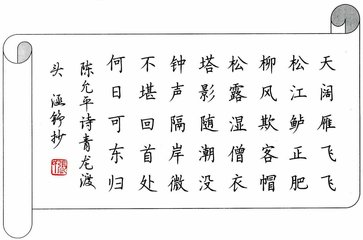 天阔雁飞飞
松江鲈正肥
柳风欺客帽
松露湿僧衣
塔影随潮没
钟声隔岸微
不堪回首处
何日可东归
陈允平诗青龙渡
头 涵锣抄